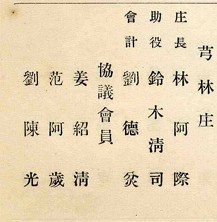 芎林庄
庄長 林阿際
助役 鈴木淸司
會計 劉德炎
協議會員
姜紹淸
范阿歲
劉陳光